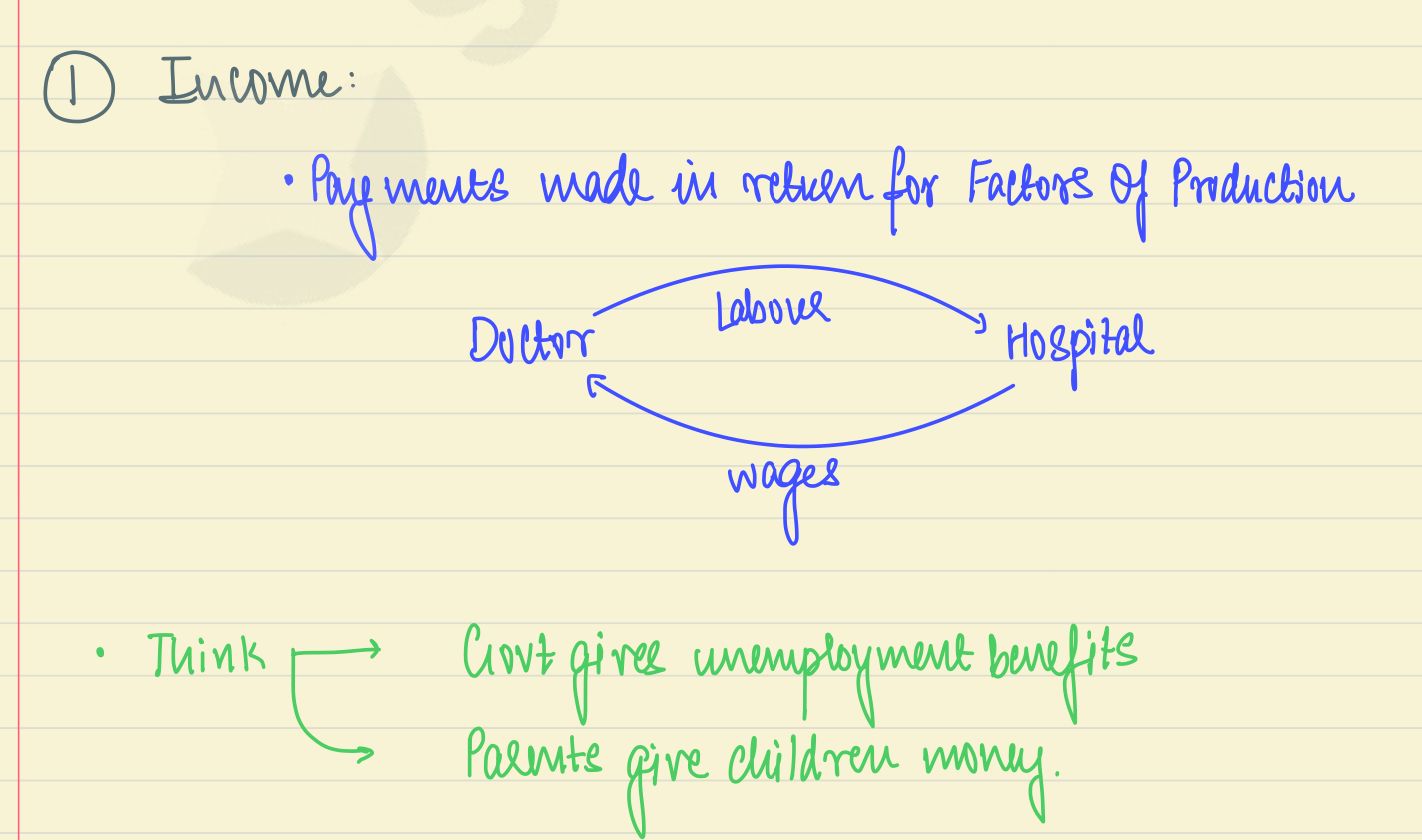 ① Income:
• Payments made in return for Factors Of Production
Labour
Doctor Hospital
wages
• Think Govt gives unemployment benefits
Parents give children money.